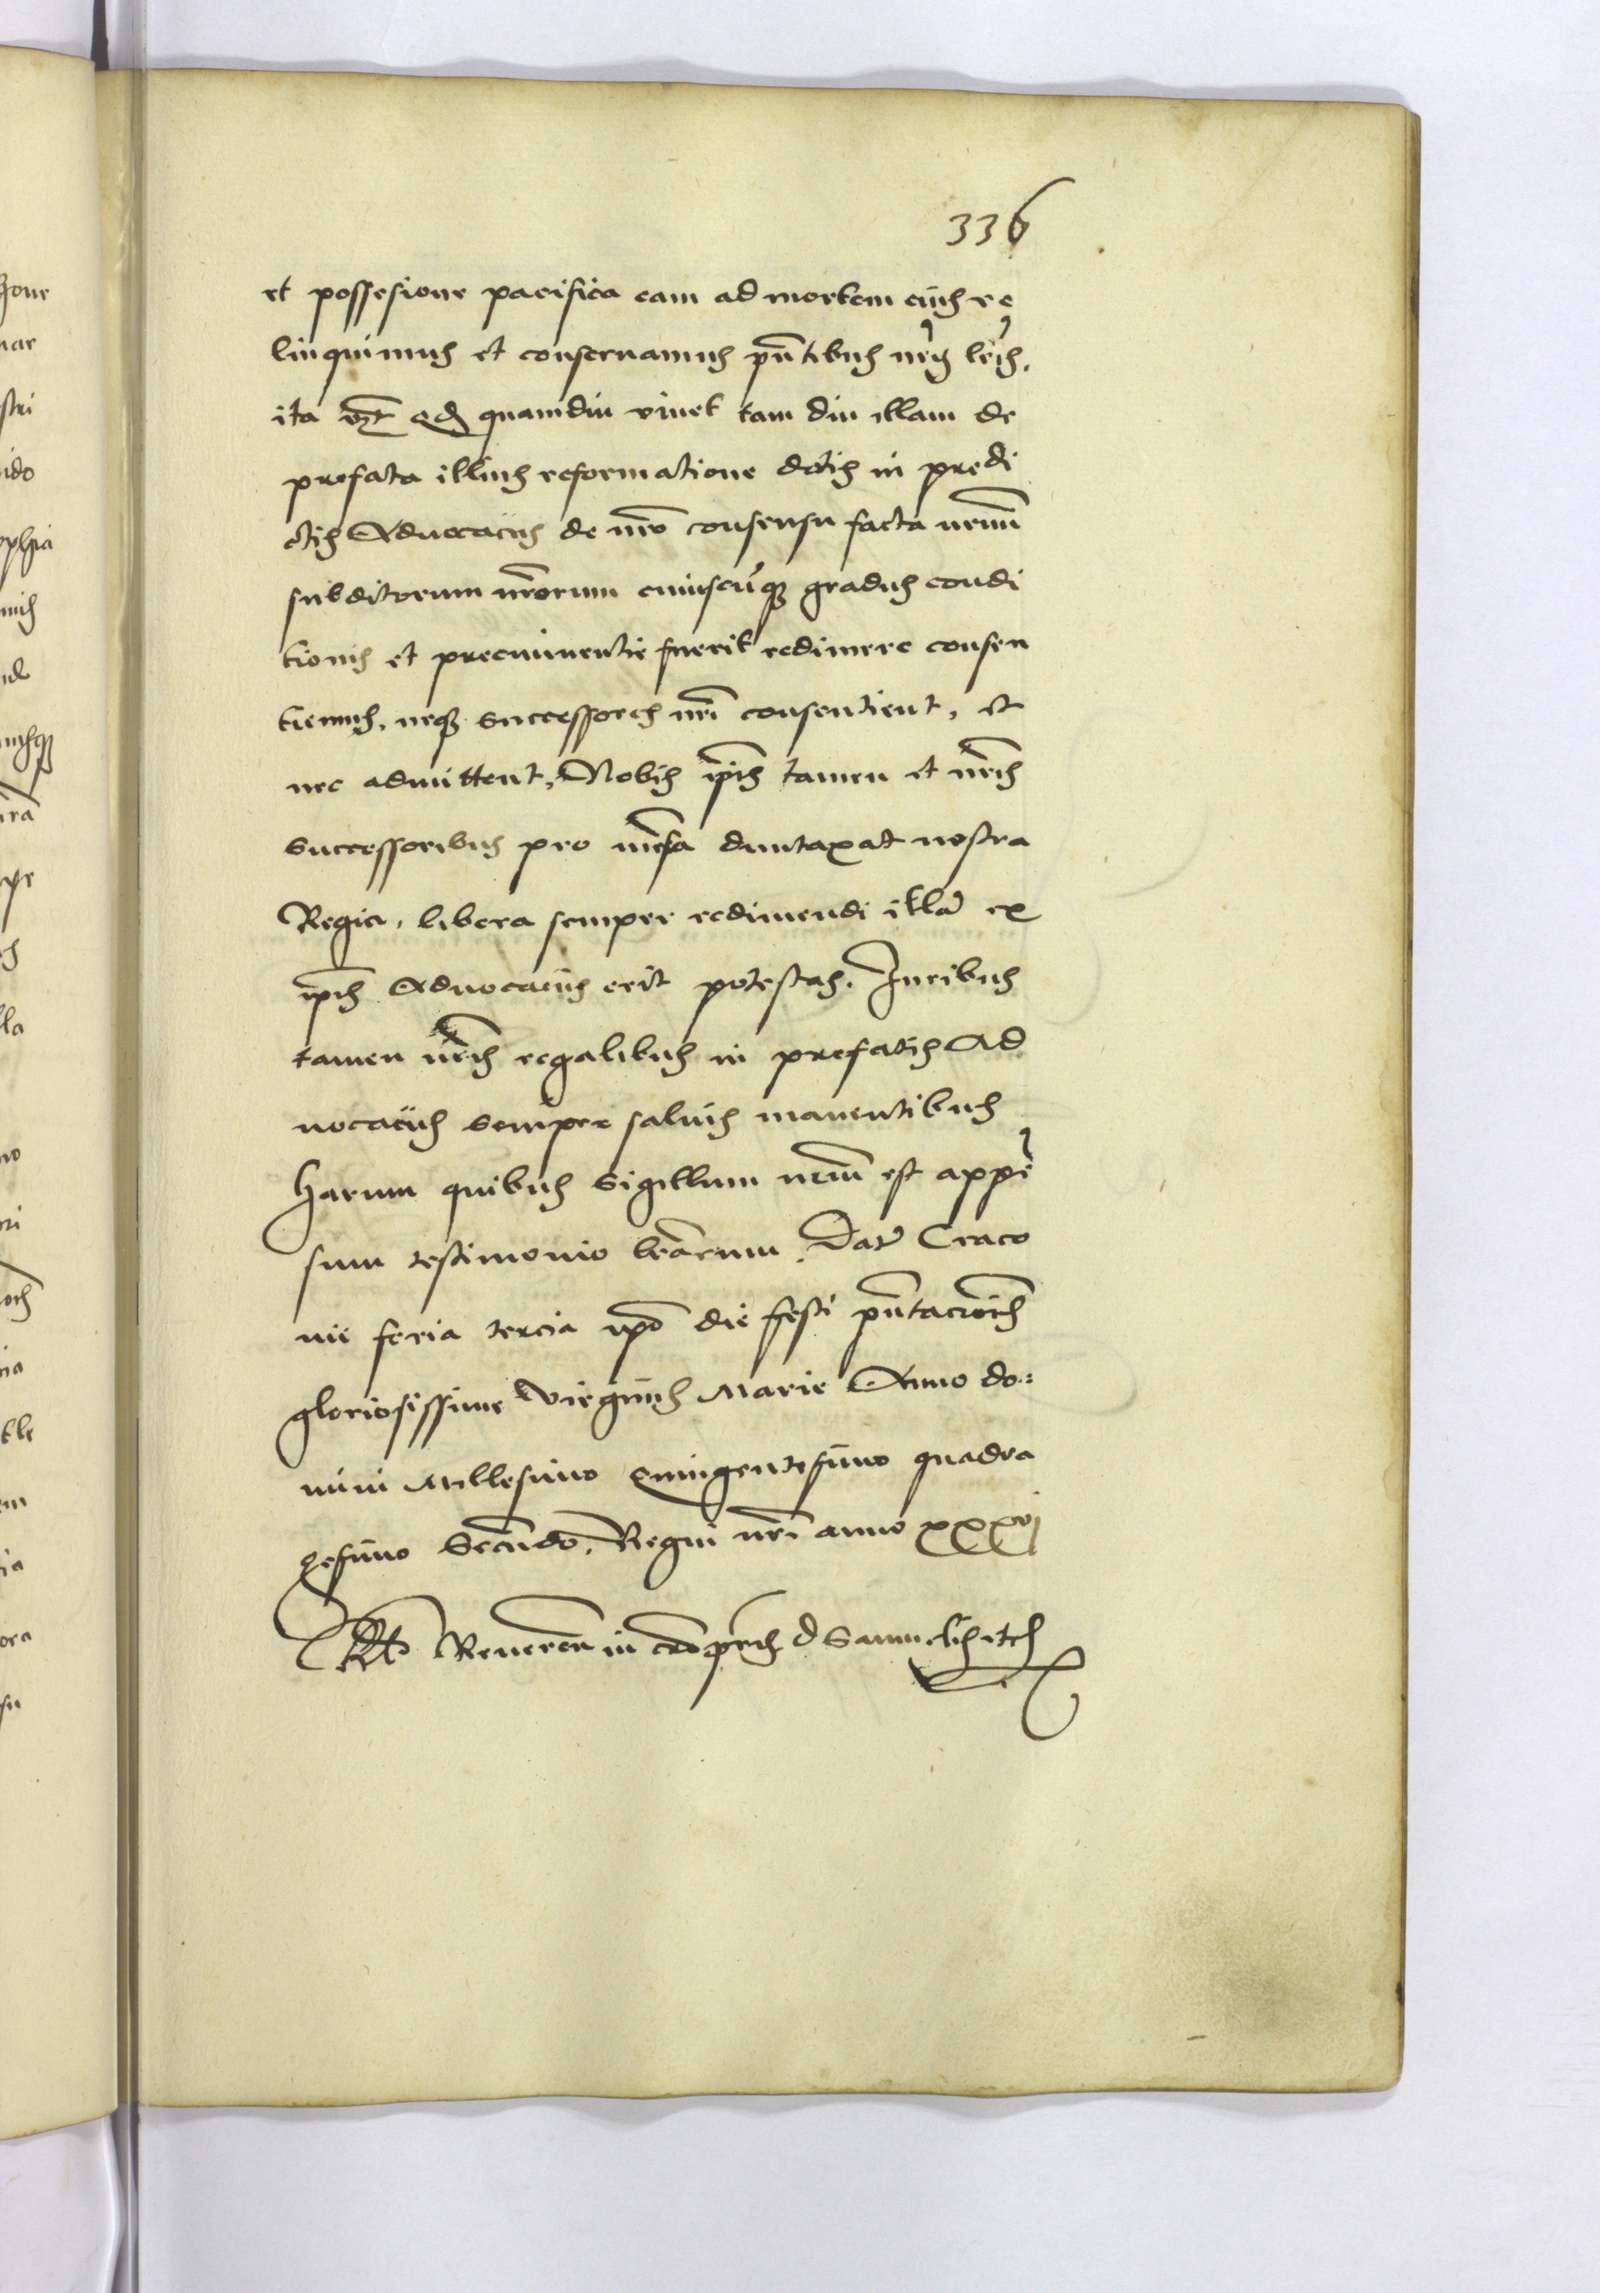 336
et possesione pacifica eam ad mortem eiuˢ re
linquimus et conseruamus pñtibus nr̃is lr̃is,
ita vt̃ qd quamdiu viuet tam diu illam de
prefata illius reformatione dotis in predi
ctis Aduocacijs de nr̃o consensu facta nemini
subditorum nr̃orum cuiuscũqʒ gradus condi
tionis et preeminentie fuerit redimere consen
tiemus, neqʒ successores nr̃i consentient, et
nec admittent, Nobis ip̃is tamen et nr̃is
successoribus pro mẽsa duntaxat nostra
Regia, libera semper redimendi illã ex
ip̃is Aduocacijs erit potestas. Iuribus
tamen nr̃is regalibus in prefatis Ad
uocacijs semper saluis manentibus
Harum quibus Sigillum nr̃um est appẽ
sum testimonio lr̃arum. Datũ Craco
uie feria tercia ip̃o die festi pñtacionis
gloriosissime Virginis Marie Anno do:
mini Millesimo Quingentesimo quadra
gesimo Secũdo, Regni nr̃i anno xxxvj
Rlo Reueren in cr̃o pr̃is d Samuelis etc